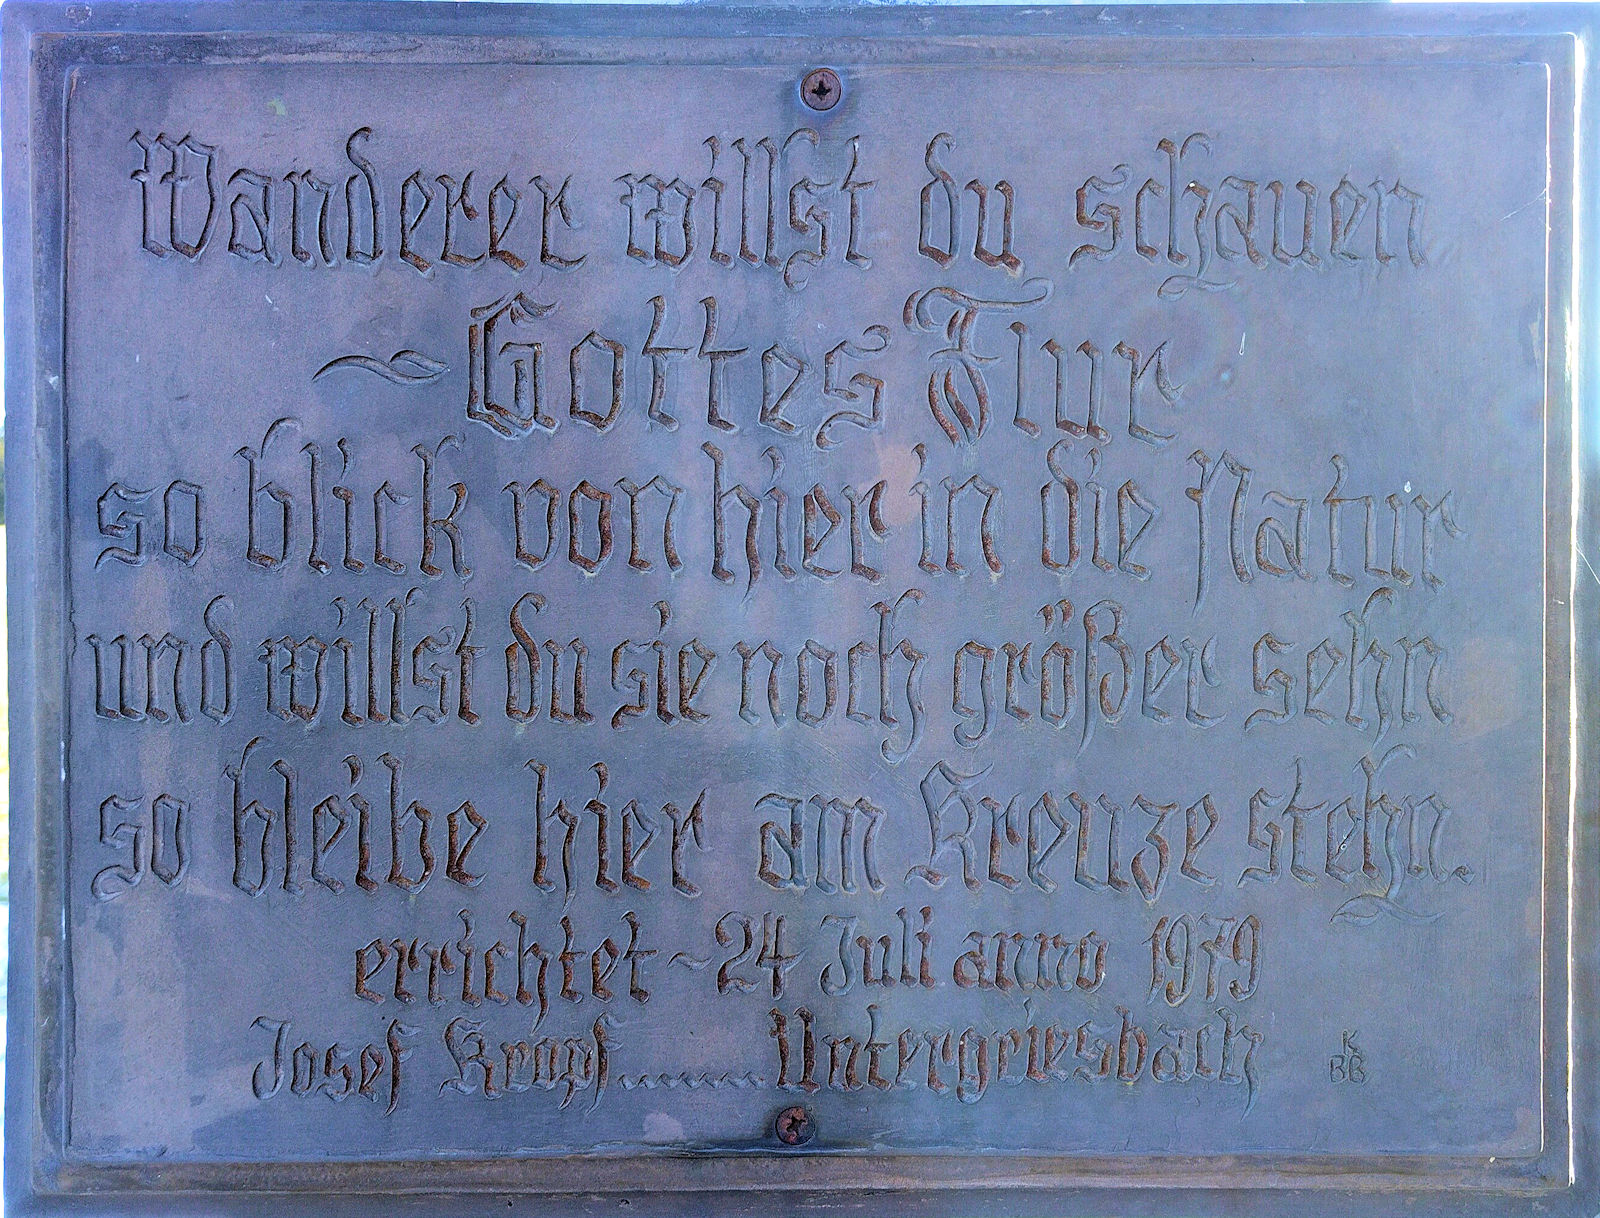 Wanderer willst du schauen
~ Gottes Flur
so blick von hier in die Natur
und willst du sie noch größer sehn
so bleibe hier am Kreuze stehn.
errichtet ~ 24 Juli anno 1979
Josef Kropf ........ Untergriesbach